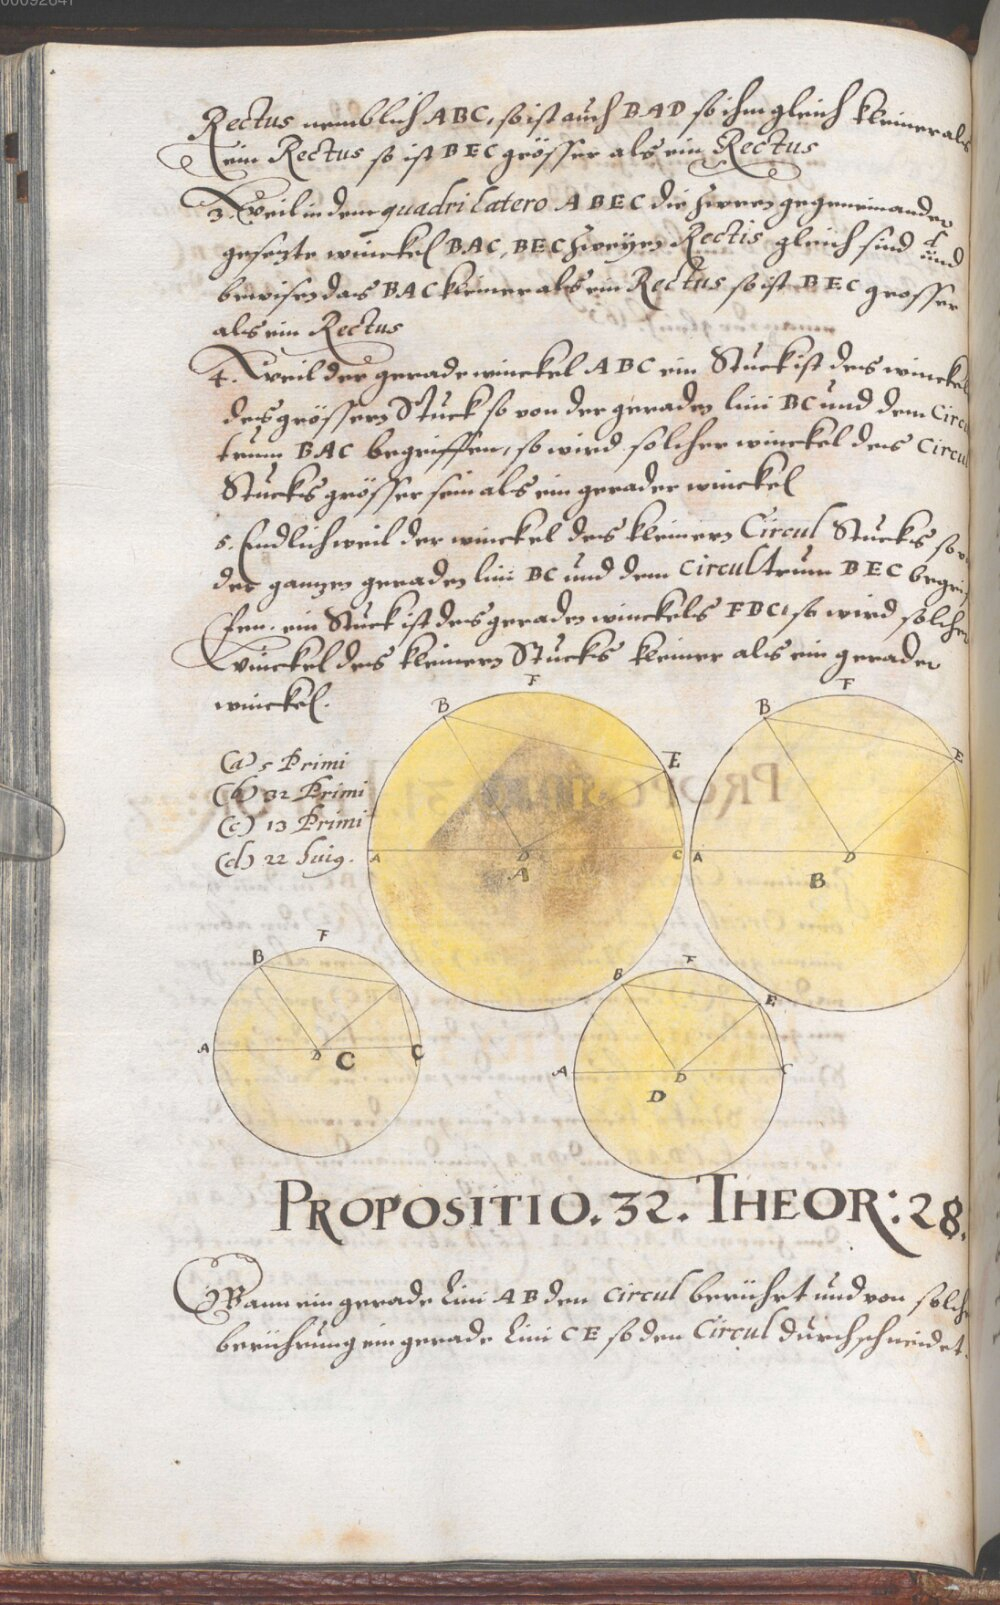 Rectus nemblich ABC, so ist auch BAD so ihm gleich kleiner als
ein Rectus so ist BEC grösser als ein Rectus
3. Weil in dem quadrilatero ABEC die zween gegeneinander
gesezte winckel BAC, BEC zweyen Rectis gleich sind d und
bewisen das BAC kleiner als ein Rectus so ist BEC grosser
als ein Rectus
4. Weil der gerade winckel ABC ein Stuck ist des winckel
des grössern Stuck so von der geraden lini BC und dem Circ
trum BAC begriffen, so wird solcher winckel des Circul
Stucks grösser sein als ein gerader winckel
5. Endlich weil der winckel des kleinern Circul Stucks so
der ganzen geraden lini BC und dem Circultrum BEC begrif
fen. ein Stuck ist des geraden winckels FBC, so wird solcher
Winckel des kleinern Stucks kleiner als ein gerader
winckel.
(a) 5 Primi
(b) 32 Primi
(c) 13 Primi
(d) 22 huig.
F
B
E
A
D
C
A
F
B
E
A
D
B
F
B
A
D
C
C
F
B
E
A
D
C
D
PROPOSITIO. 32. THEOR: 28.
Wann ein gerade Lini AB den circul berührt und von solche
berührung ein gerade Lini CE so den Circul durchschneidet